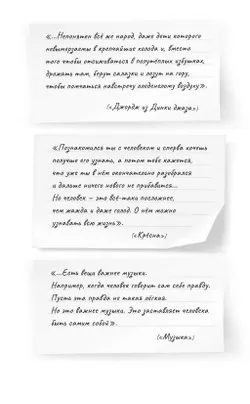 «...Непонятен всё же народ, даже дети которого
невылазны в крепчайшие холода и, вместо
того чтобы отсиживаться в полутёплых избушках,
дрожать там, берут салазки и лезут на гору,
чтобы помчаться навстречу оледенелому воздуху».
(«Джордж из Динки джаза»)
«Познакомился ты с человеком и сперва хочешь
получше его узнать, а потом тебе кажется,
что уже ты в нём окончательно разобрался
и дальше ничего нового не прибавится...
Но человек – это всё-таки посложнее,
чем жажда и даже голод. О нём можно
узнавать всю жизнь».
(«Крёсна»)
«...Есть вещи важнее музыки.
Например, когда человек говорит сам себе правду.
Пусть эта правда не такая лёгкая.
Но это важнее музыки. Это заставляет человека
быть самим собой».
(«Музыка»)